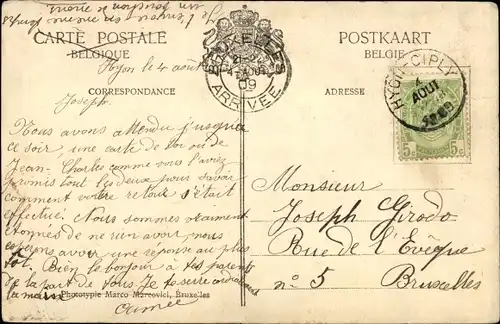 CARTE POSTALE
BELGIQUE
POSTKAART
BELGIE
CORRESPONDANCE
ADRESSE
BRUXELLES
4 AOUT
09
ARRIVÉE
HYON-CIPLY
AOUT
5c 5c
Hyon le 4 août
Joseph.
Nous avons attendu jusqu'à
ce soir une carte de toi ou de
Jean-Charles comme vous l'aviez
promis tout les deux pour savoir
comment votre retour s'était
effectué. Nous sommes vraiment
étonnés de ne rien avoir nous
espérons avoir une réponse au plus
tôt. Bien le bonjour à tes parents
de la part de tous. Je te serre
la main
Aimée
Phototypie Marco Marcovici, Bruxelles
Monsieur
Joseph Girodo
Rue de l'Evêque
n° 5 Bruxelles